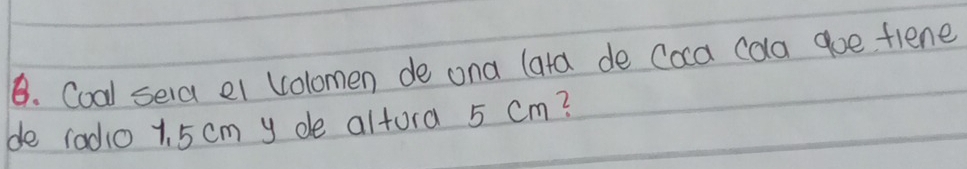 8. Coal sera el Volomen de ona lata de Coca Cola qoe tiene
de radio 1.5 cm y de altora 5 cm?